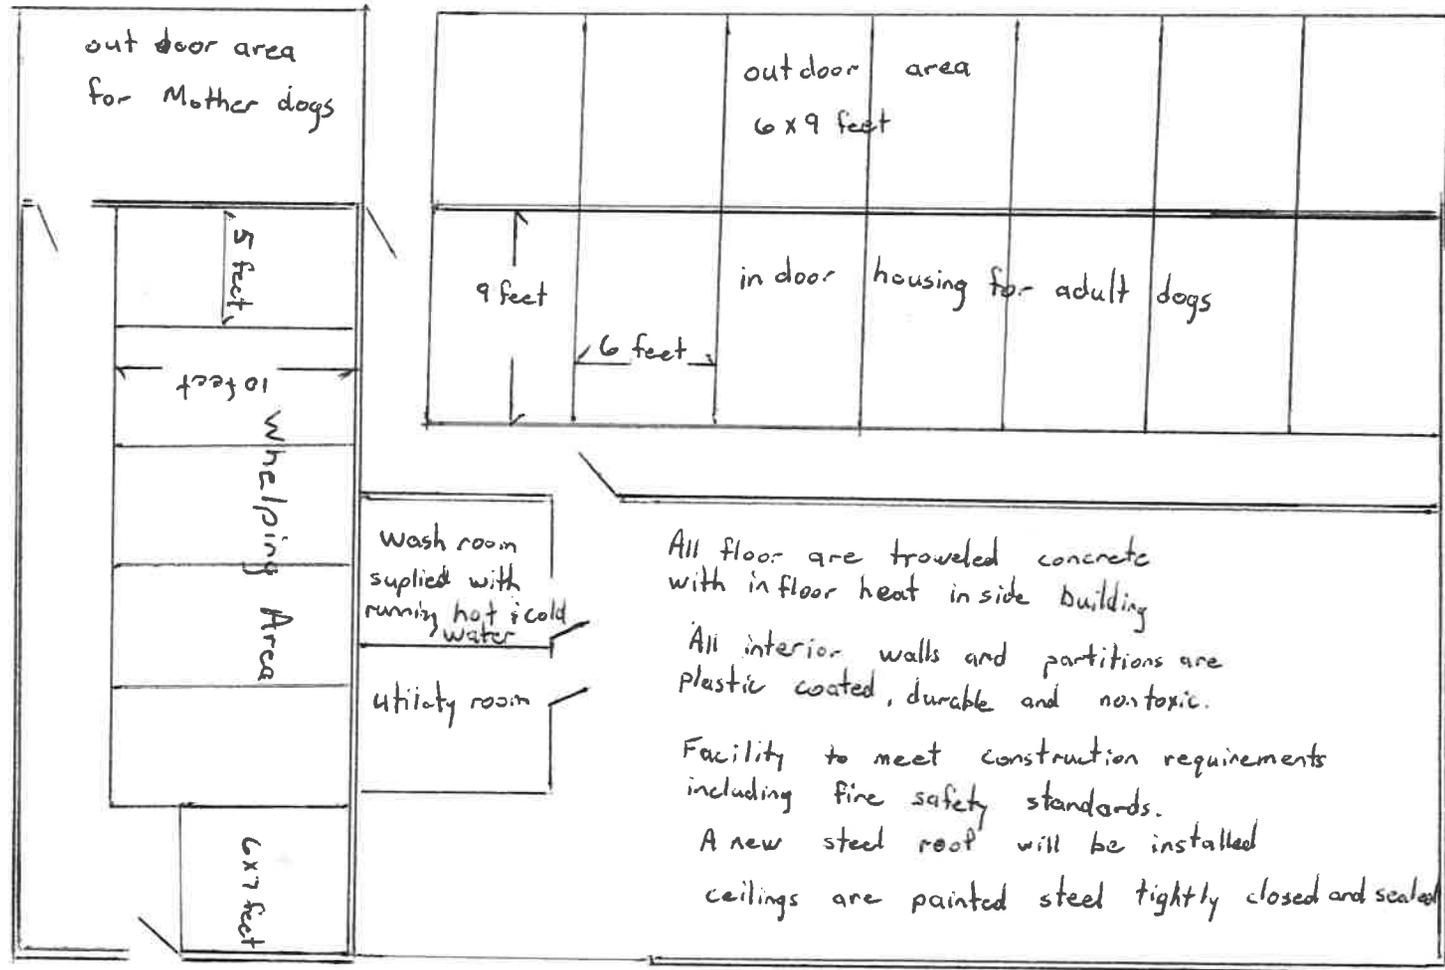 out door area
for Mother dogs
outdoor area
6 x 9 feet
5 feet
9 feet
in door housing for adult dogs
6 feet
10 feet
Whelping Area
wash room
suplied with
runnig hot & cold
water
utilaty room
All floor are troweled concrete
with infloor heat inside building
All interior walls and partitions are
plastic coated, durable and nontoxic.
Facility to meet construction requirements
including fire safety standards.
A new steel roof will be installed
ceilings are painted steel tightly closed and sealed
6 x 7 feet